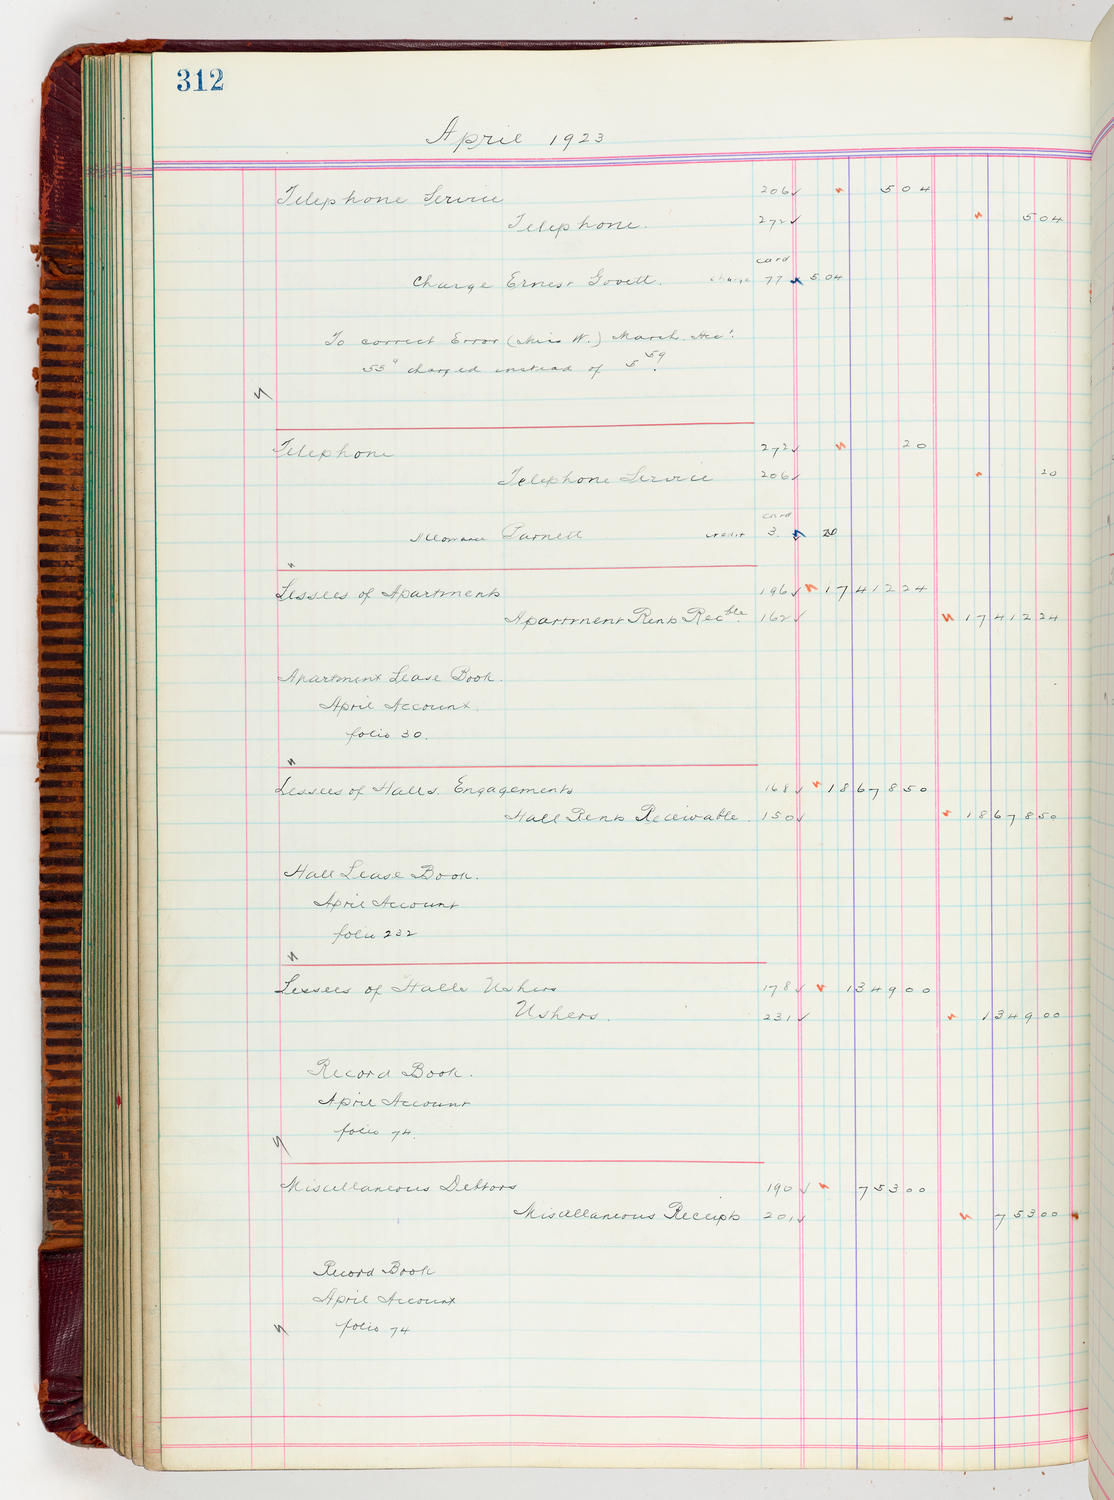 312
April 1923
Telephone Service 206 ✓ 5 04
Telephone. 272 ✓ 5 04
card
Charge Ernest Govett. charge 77 5.04
To correct Error (Miss W.) March Acc't.
55¢ charged instead of 5 59.
Telephone 272 ✓ 20
Telephone Service 206 ✓ 20
card
Allowance Parnell credit 3. 20
Lessees of Apartments 196 ✓ 17412 24
Apartment Rents Rec'ble. 162 ✓ 17412 24
Apartment Lease Book.
April Account.
folio 30.
Lessees of Halls. Engagements 168 ✓ 18678 50
Hall Rents Receivable. 150 ✓ 18678 50
Hall Lease Book.
April Account
folio 232
Lessees of Halls Ushers 178 ✓ 1349 00
Ushers. 231 ✓ 1349 00
Record Book.
April Account
folio 74.
Miscellaneous Debtors 190 ✓ 753 00
Miscellaneous Receipts 201 ✓ 753 00
Record Book
April Account
folio 74